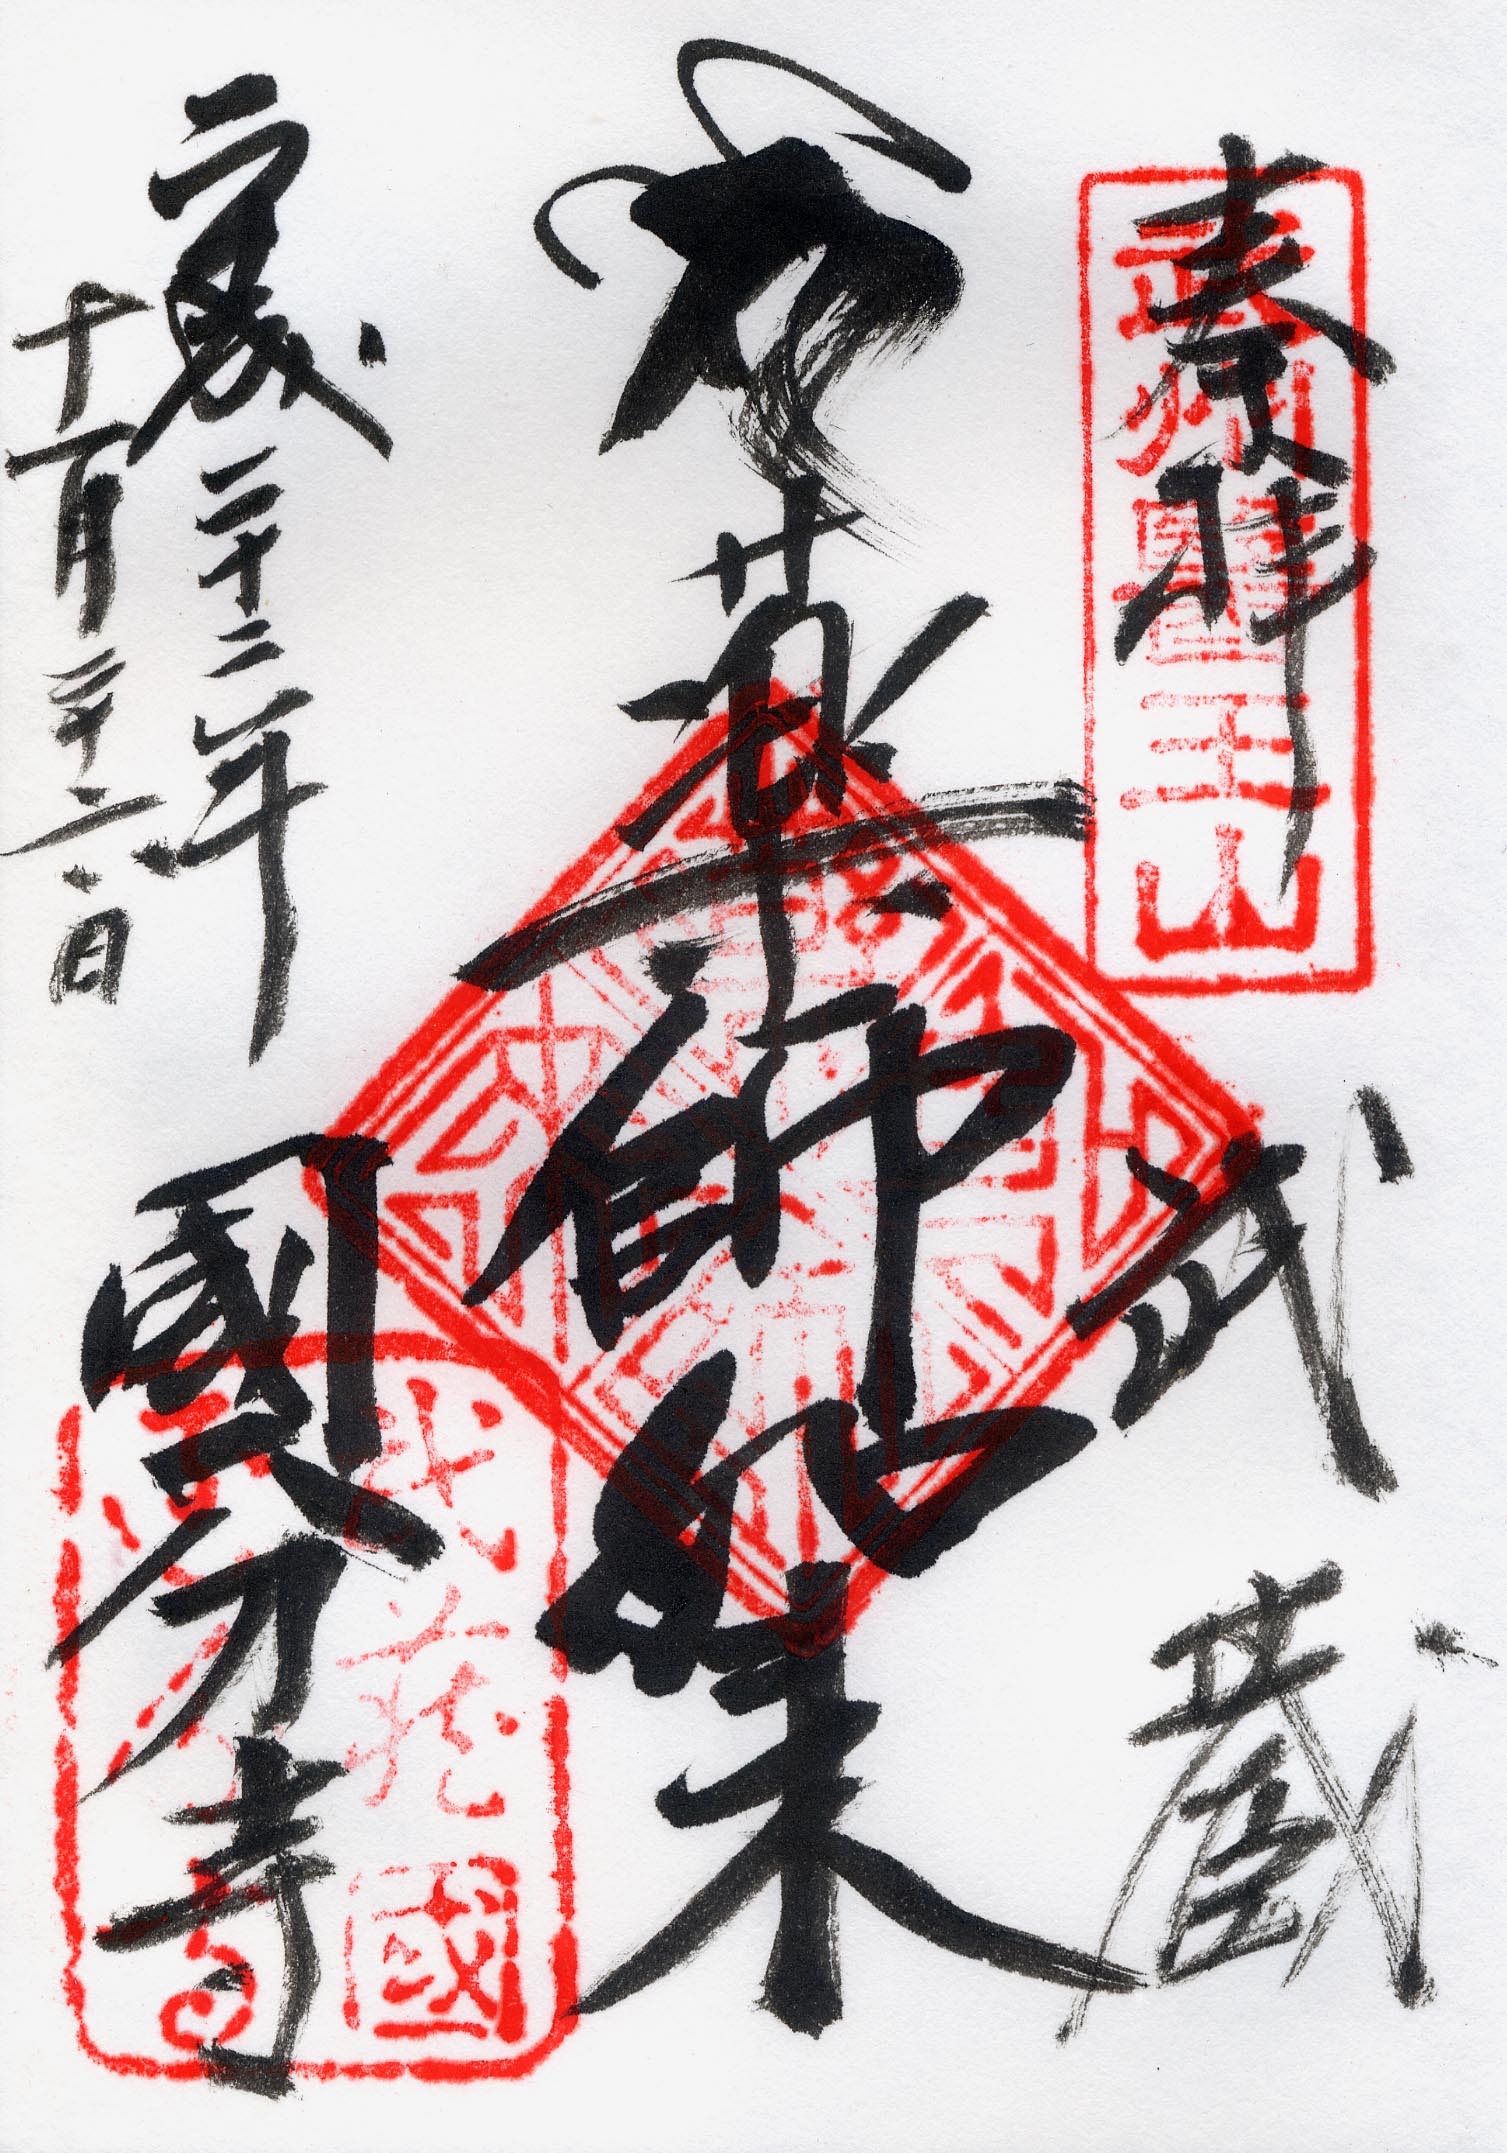 奉拝
武州醫王山
武蔵
薬師如来
平成二十二年
十一月二十六日
國分寺
武蔵國